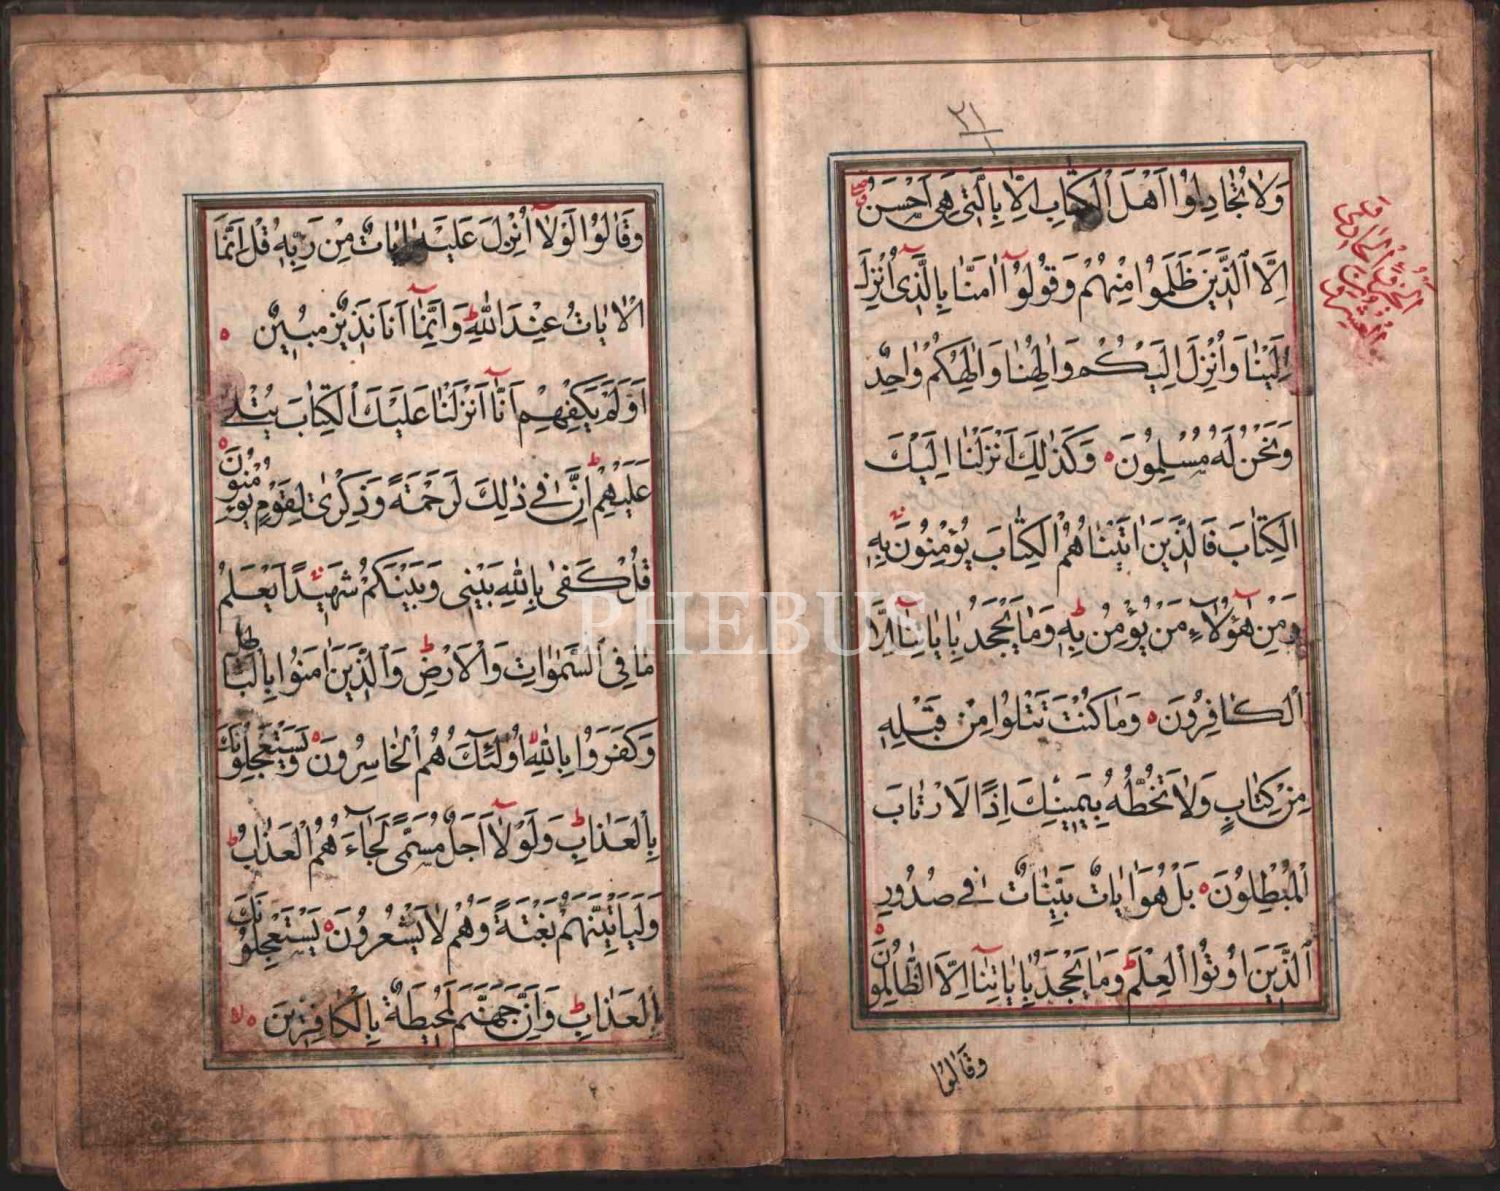 ٢١
١
وَلَا تُجَادِلُوا اَهْلَ الْكِتَابِ اِلَّا بِالَّتِى هِىَ اَحْسَنُ
اِلَّا الَّذِينَ ظَلَمُوا مِنْهُمْ وَقُولُوا اٰمَنَّا بِالَّذِى اُنْزِلَ
اِلَيْنَا وَاُنْزِلَ اِلَيْكُمْ وَاِلٰهُنَا وَاِلٰهُكُمْ وَاحِدٌ
وَنَحْنُ لَهُ مُسْلِمُونَ وَكَذٰلِكَ اَنْزَلْنَا اِلَيْكَ
الْكِتَابَ فَالَّذِينَ اٰتَيْنَاهُمُ الْكِتَابَ يُؤْمِنُونَ بِهِ
وَمِنْ هٰؤُلَاءِ مَنْ يُؤْمِنُ بِهِ وَمَا يَجْحَدُ بِاٰيَاتِنَا اِلَّا
الْكَافِرُونَ وَمَا كُنْتَ تَتْلُوا مِنْ قَبْلِهِ
مِنْ كِتَابٍ وَلَا تَخُطُّهُ بِيَمِينِكَ اِذًا لَارْتَابَ
الْمُبْطِلُونَ بَلْ هُوَ اٰيَاتٌ بَيِّنَاتٌ فِى صُدُورِ
الَّذِينَ اُوتُوا الْعِلْمَ وَمَا يَجْحَدُ بِاٰيَاتِنَا اِلَّا الظَّالِمُونَ
وَقَالُوا
وَقَالُوا لَوْلَا اُنْزِلَ عَلَيْهِ اٰيَاتٌ مِنْ رَبِّهِ قُلْ اِنَّمَا
الْاٰيَاتُ عِنْدَ اللّٰهِ وَاِنَّمَا اَنَا نَذِيرٌ مُبِينٌ
اَوَلَمْ يَكْفِهِمْ اَنَّا اَنْزَلْنَا عَلَيْكَ الْكِتَابَ يُتْلٰى
عَلَيْهِمْ اِنَّ فِى ذٰلِكَ لَرَحْمَةً وَذِكْرٰى لِقَوْمٍ يُؤْمِنُونَ
قُلْ كَفٰى بِاللّٰهِ بَيْنِى وَبَيْنَكُمْ شَهِيدًا يَعْلَمُ
مَا فِى السَّمٰوَاتِ وَالْاَرْضِ وَالَّذِينَ اٰمَنُوا بِالْبَاطِلِ
وَكَفَرُوا بِاللّٰهِ اُولٰئِكَ هُمُ الْخَاسِرُونَ وَيَسْتَعْجِلُونَكَ
بِالْعَذَابِ وَلَوْلَا اَجَلٌ مُسَمًّى لَجَاءَهُمُ الْعَذَابُ
وَلَيَاْتِيَنَّهُمْ بَغْتَةً وَهُمْ لَا يَشْعُرُونَ يَسْتَعْجِلُونَكَ
بِالْعَذَابِ وَاِنَّ جَهَنَّمَ لَمُحِيطَةٌ بِالْكَافِرِينَ
PHEBUS